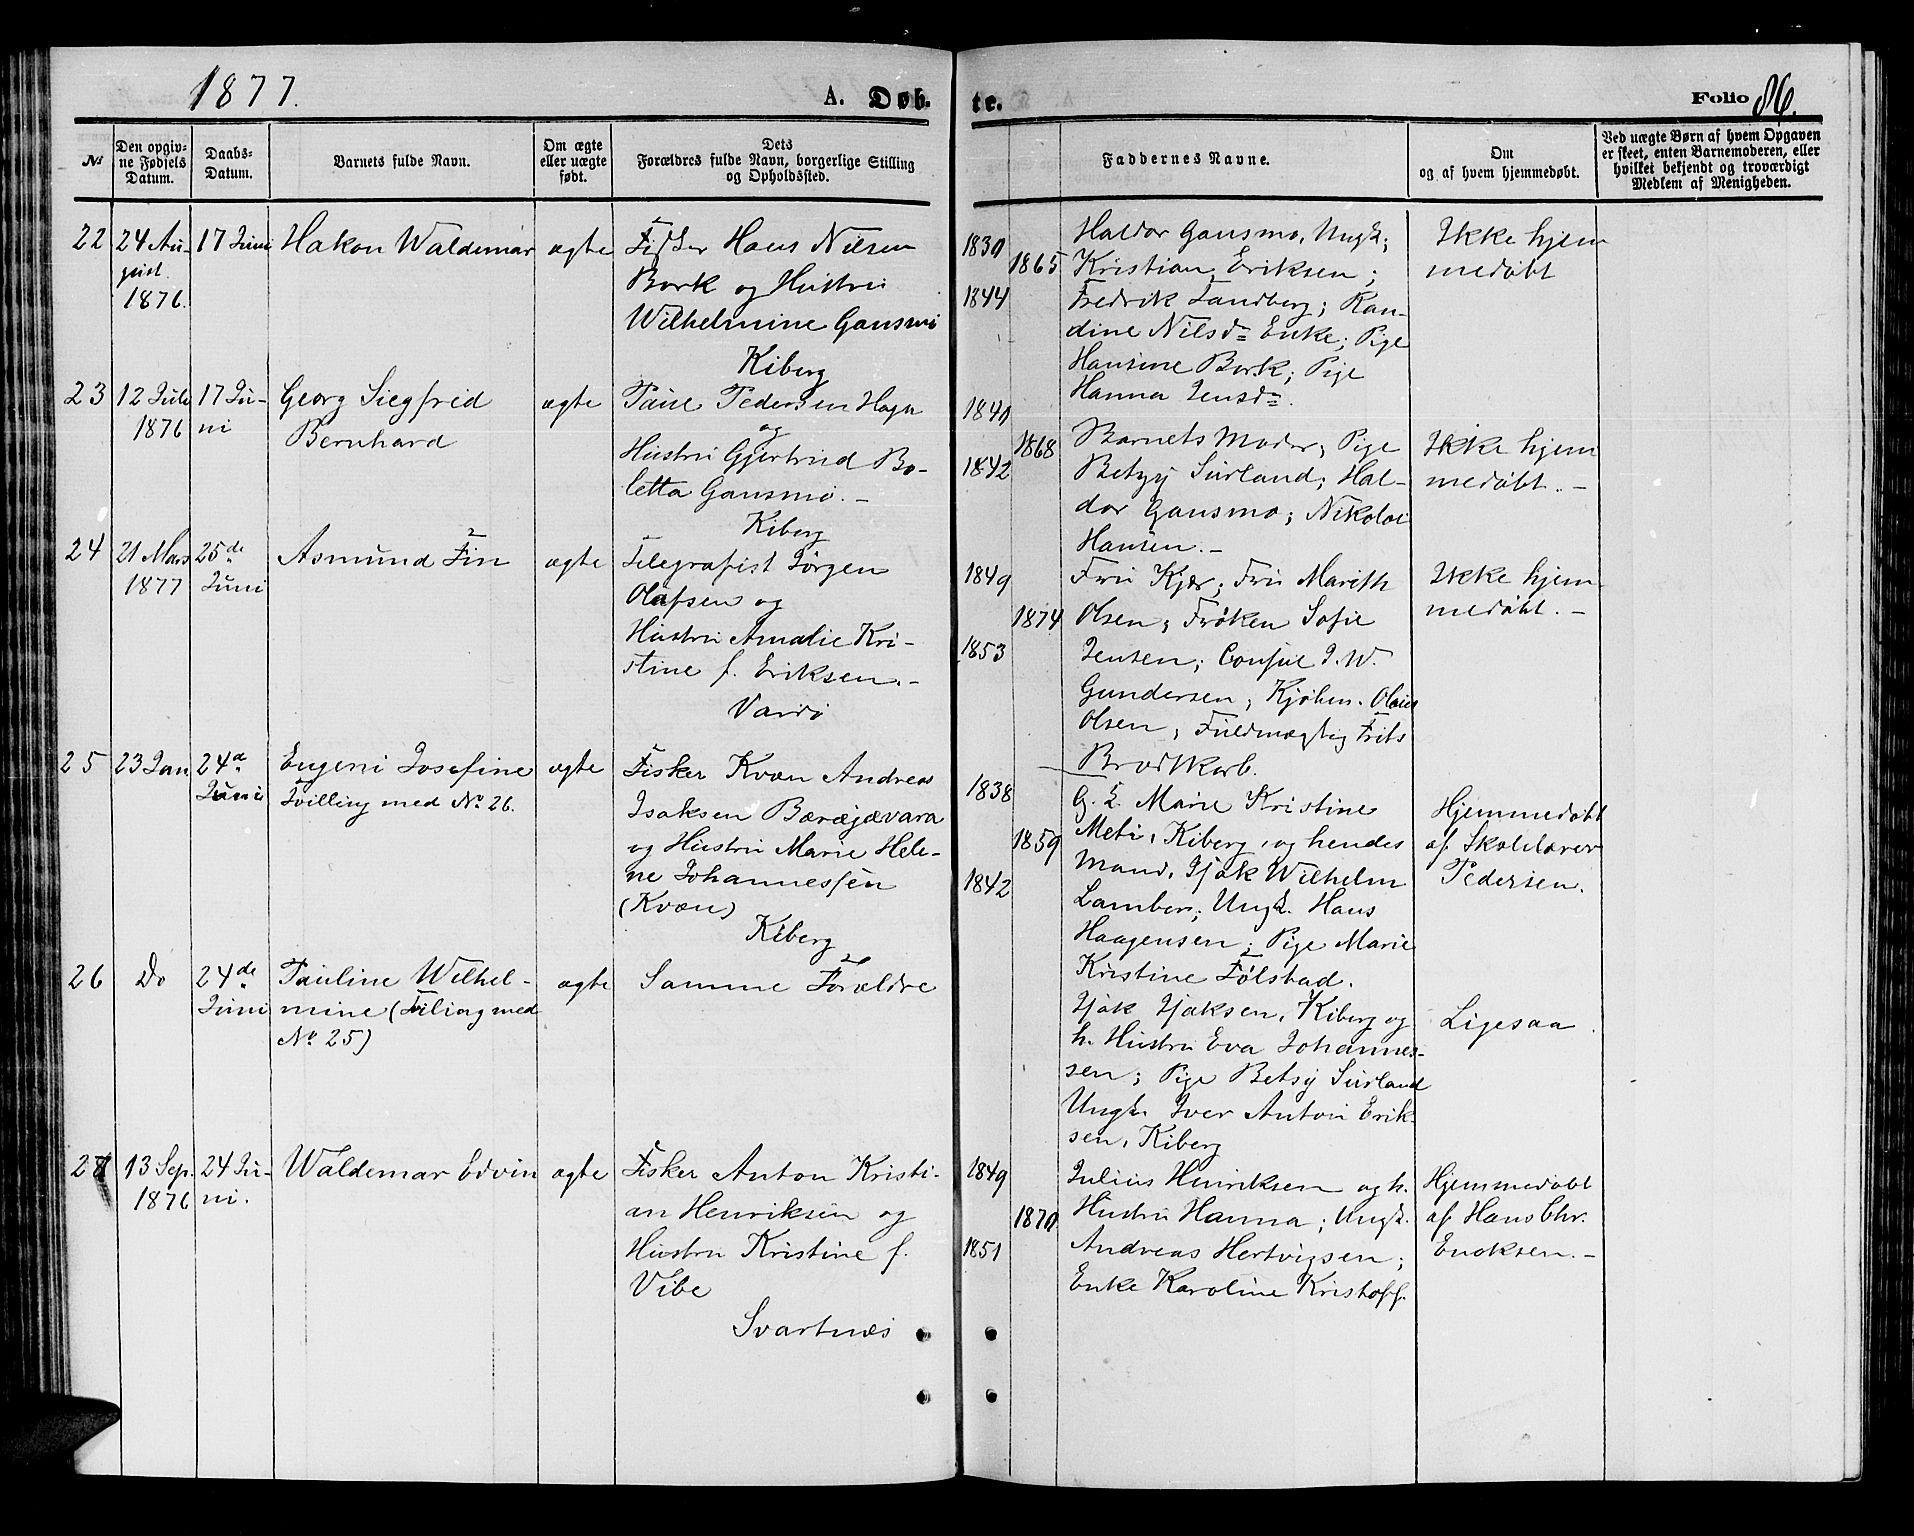 1877.
A. Døb-
te.
Folio 86.
№
Den opgiv-
ne Fødsels
Datum.
Daabs-
Datum.
Barnets fulde Navn.
Om ægte
eller uægte
født.
Dets
Forældres fulde Navn, borgerlige Stilling
og Opholdssted.
Faddernes Navne.
Om
og af hvem hjemmedøbt.
Ved uægte Børn af hvem Opgaven
er skeet, enten Barnemoderen, eller
hvilket bekjendt og troværdigt
Medlem af Menigheden.
22
24 Au-
gust
1876.
17 Juni
Hakon Waldemar
ægte
Fisker Hans Nilsen
Bork og Hustru
Wilhelmine Gansmo
Kiberg
1830
1865
1844
Haldor Gansmo, Ungk;
Kristian Eriksen;
Fredrik Landberg; Ran-
dine Nilsd= Enke; Pige
Hansine Bork; Pige
Hanna Jensd=.
Ikke hjem
medøbt
23
12 Juli
1876
17 Ju-
ni
Georg Siegfried
Bernhard
ægte
Paul Pedersen Hagen
og
Hustru Gjertrud Bo-
letta Gansmo. -
Kiberg
1840
1868
1842
Barnets Moder; Pige
Betzy Surland; Hal-
dor Gansmo; Nikolai
Hansen. -
Ikke hjem
medøbt. -
24
21 Mars
1877
25de
Juni
Asmund Fin
ægte
Telegrafist Jørgen
Olafsen og
Hustru Amalie Kri-
stine f. Eriksen. -
Vardø
1849
1874
1853
Fru Kjær; Fru Marith
Olsen; Frøken Sofie
Jensen; Consul J. W.
Gundersen; Kjøbm. Olaus
Olsen; Fuldmægtig Frits
Brodtkorb.
Ikke hjem
medøbt. -
25
23 Jan
24de
Juni
Eugeni Josefine
Tvilling med No 26.
ægte
Fisker Kvæn Andreas
Isaksen Bæræjævara
og Hustru Marie Hele-
ne Johannessen
(Kvæn)
Kiberg
1838
1859
1842
G. K. Marie Kristine
Meti, Kiberg, og hendes
Mand, Isak Wilhelm
Lamben; Ungk. Hans
Haagensen; Pige Marie
Kristine Følstad.
Hjemmedøbt
af Skolelærer
Pedersen.
26
Do
24de
Juni
Pauline Wilhel-
mine (Tviling med
No 25)
ægte
Samme Forældre
Isak Isaksen, Kiberg og
h. Hustru Eva Johannes-
sen; Pige Betsy Surland
Ungk. Iver Anton Erik-
sen, Kiberg
Ligesaa
27
13 Sep.
1876
24 Ju-
ni.
Waldemar Edvin
ægte
Fisker Anton Kristi-
an Henriksen og
Hustru Kristine f.
Vibe
Svartnæs
1849
1870
1851
Julius Henriksen og h.
Hustru Hanna; Ungk.
Andreas Hertvigsen;
Enke Karoline Kristoff.
Hjemmedøbt
af Hans Chr.
Enoksen. -